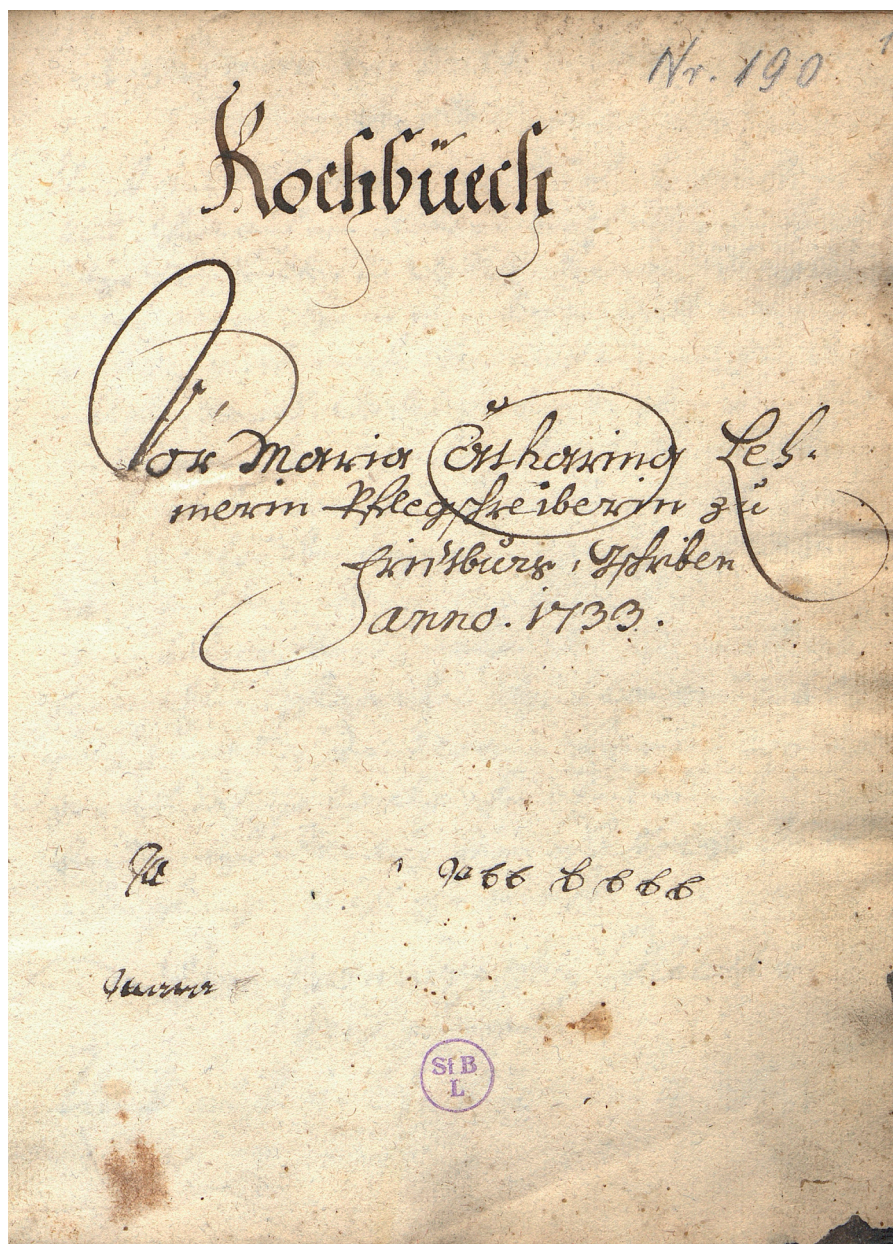 Nr. 190
Kochbüech
Vor Maria Catharina Leh-
merin Pflegschreiberin zu
Geschriben
anno. 1733.
St B
L